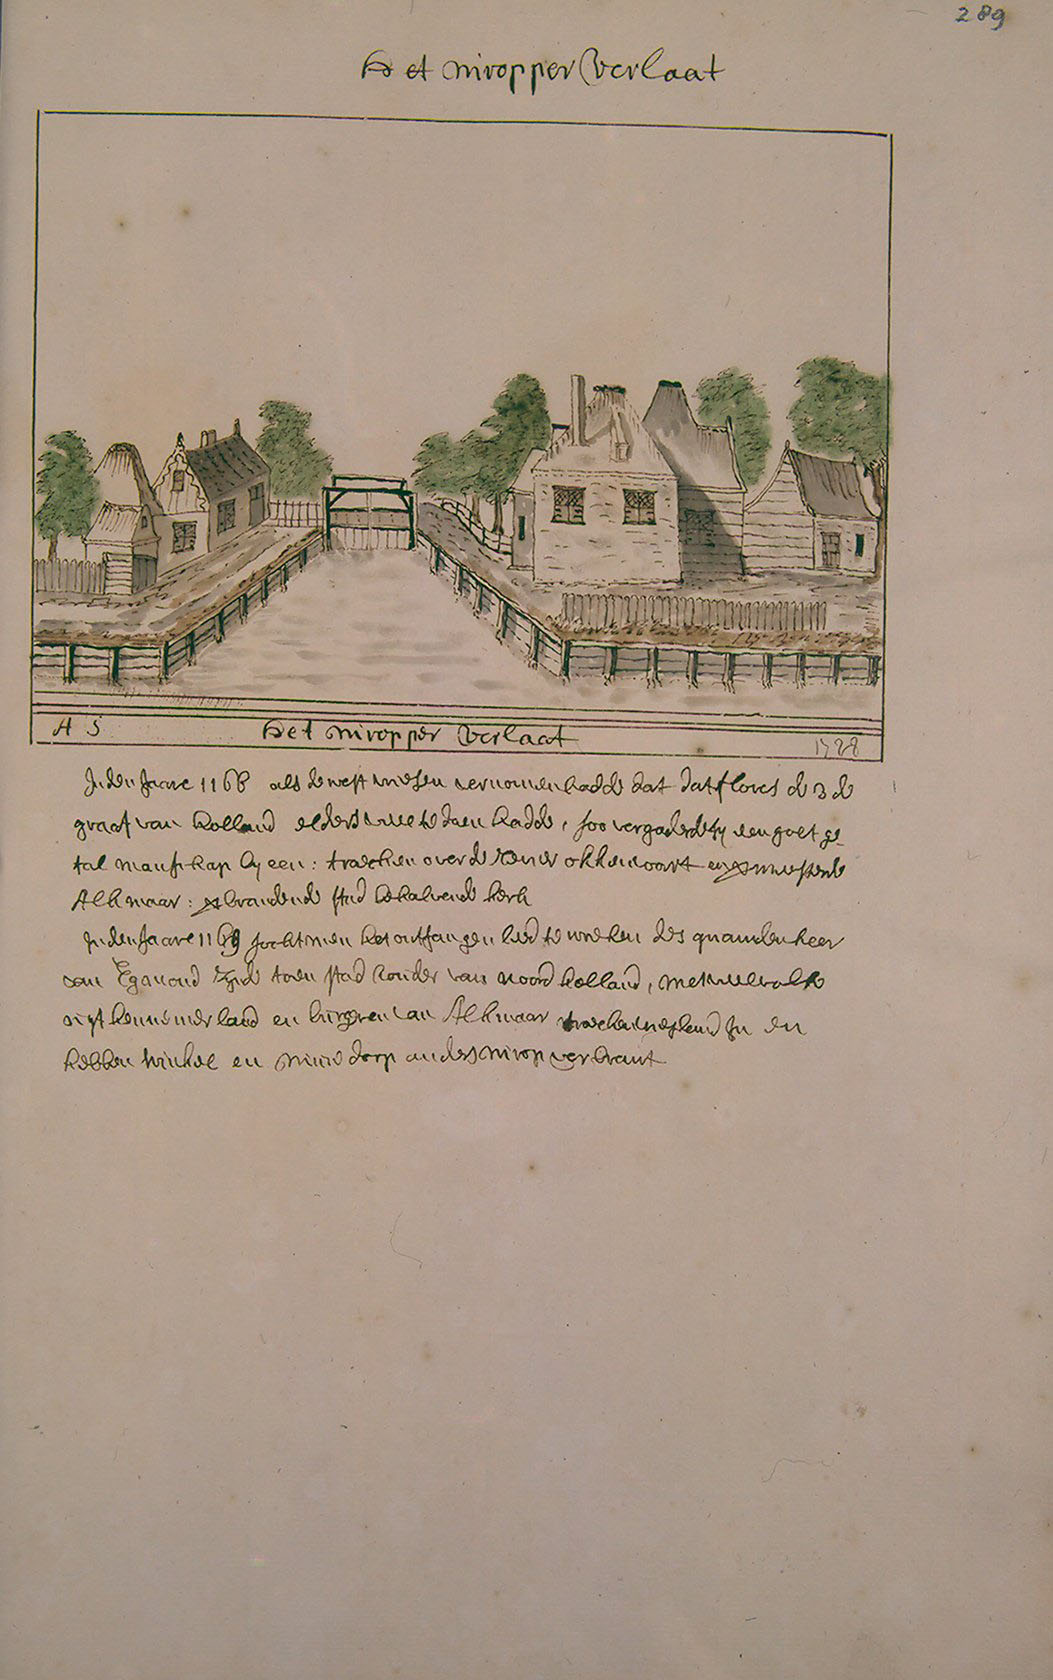 289
Het niropper Verlaat
A S
Het niropper Verlaat
1728
In den Jaare 1168 als de west vriesen vernomen hadde dat dat floris de 3 de
graaf van holland elders te doen hadde, soo vergaderde sy een goet ge
tal manschap by een: trocken over de revier okkenvoort en
Alkmaar: brandende stad behalve de kerk
In den Jaare 1169 socht men het ontfangen leed te wreken des quam den heer
van Egmond zynde toen stad houder van noord holland, met veel volk
uyt kennemerland en burgeren van Alkmaar in en
hebben winkel en nieuwe dorp anders nirop verbrant